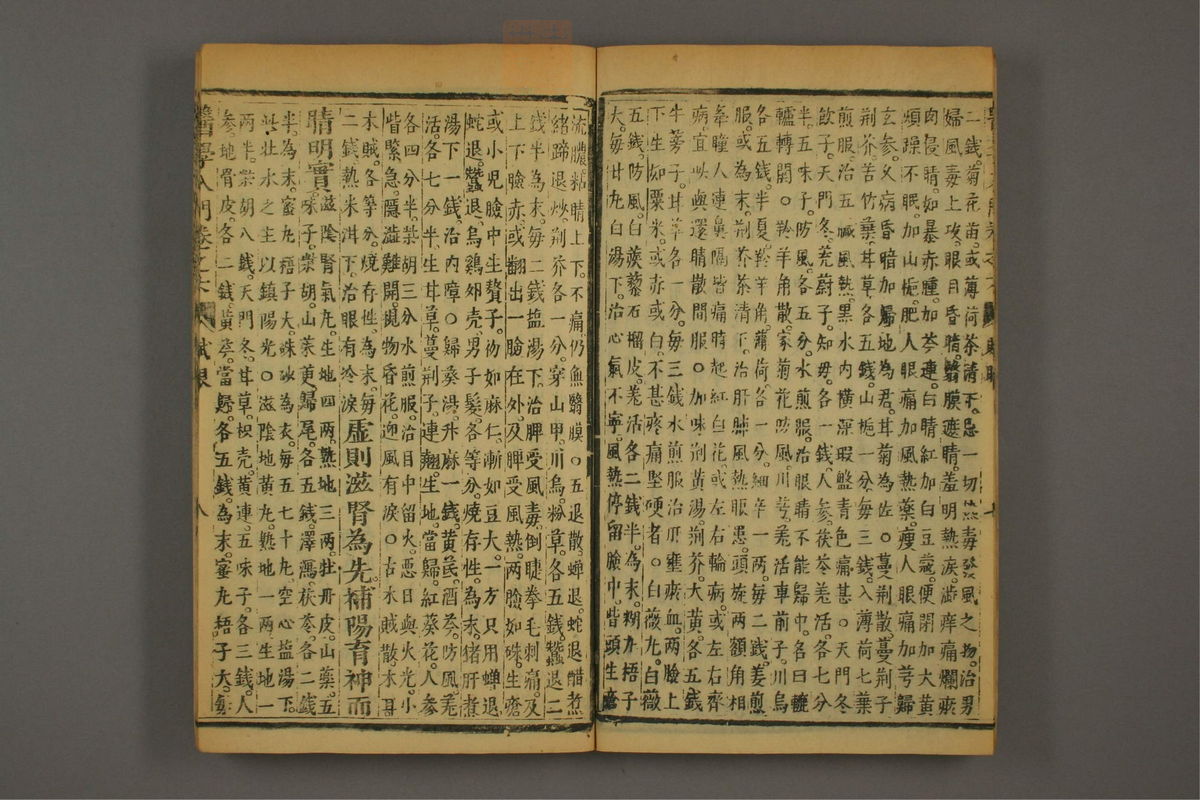 二錢。菊花苗或薄荷茶清下。忌一切熱毒發風之物。治男
婦風毒上攻。眼目昏晴。翳膜遮睛。羞明熱淚。澁痒痛爛瘀
肉侵睛。如暴赤腫。加芩連。白睛紅加白豆蔻。便閉加大黃
煩躁不眠。加山梔。肥人眼痛。加風熱藥。瘦人眼痛加芎歸
玄參。久病昏暗。加歸地為君。甘菊為佐。○蔓荊散。蔓荊子
荊芥苦竹葉。甘草各五錢。山梔一分。每三錢。入薄荷七葉
煎服。治五臟風熱。黑水內橫深瑕盤青色痛甚。○天門冬
飲子。天門冬。茺蔚子。知母。各一錢。人參。茯苓羌活各七分
半。五味子。防風。各五分。水煎服。治眼睛不能歸中。名曰轆
轤轉關。○羚羊角散。家菊花。防風。川芎。羌活車前子。川烏
各五錢。半夏羚羊角。薄荷各一分。細辛一兩。每二錢。姜煎
服。或為末。荊芥茶清下。治肝肺風熱眼患。頭旋兩額角相
牽瞳人連鼻隔皆痛。時起紅白花。或左右輪病。或左右齊
病。宜以與還睛散間服。○加味荊黃湯。荊芥。大黃。各五錢
牛蒡子。甘草。各一分。每三錢。水煎服。治肝壅瘀血。兩臉上
下生如粟米。或赤或白。不甚疼痛。堅硬者。○白薇丸。白薇
五錢。防風。白蒺藜。石榴皮。羌活。各二錢半。為末。糊丸梧子
大。每廿丸。白湯下。治心氣不寧。風熱停留臉中。眥頭生瘡
流膿粘睛上下。不痛。仍魚翳膜。○五退散。蟬退。蛇退醋煮
緒蹄退炒。荊芥各一分。穿山甲。川烏。粉草。各五錢。蠶退二
錢半為末。每二錢。塩湯下。治脾受風毒。倒睫拳毛刺痛。及
上下臉赤。或翻出一臉在外。及脾受風熱。兩臉如硃。生瘡
或小兒臉中生贅子。彷如麻仁。漸如豆大。一方只用蟬退
蛇退。蠶退。烏鷄卵壳。男子髮。各等分。燒存性。為末。猪肝煮
湯下一錢。治內障。○歸葵湯。升麻一錢。黃芪。酒芩。防風。羌
活。各七分半。生甘草。蔓荊子。連翹。生地。當歸。紅葵花。人參
各四分半。柴胡三分。水煎服。治目中留火。惡日與火光。小
眥緊急。隱澁難開。視物昏花。迎風有淚。○古木賊散。木耳
木賊。各等分。燒存性。為末。每
二錢熱米泔下。治眼有冷淚虛則滋腎為先補陽育神而
睛明實滋陰腎氣丸。生地四兩。熟地三兩。牡丹皮。山藥。五
味子。柴胡。山茱萸。歸尾。各五錢。澤瀉。茯苓。各二錢
半。為末。蜜丸梧子大。硃砂為衣。每五七十丸。空心塩湯下。
此壯水之主以鎮陽光。○滋陰地黃丸。熟地一兩。生地一
兩半。柴胡八錢。天門冬。甘草。枳壳。黃連。五味子。各三錢。人
參。地骨皮。各二錢。黃芩。當歸。各五錢。為末。蜜丸梧子大。每
醫學入門卷之六 賦 眼 八